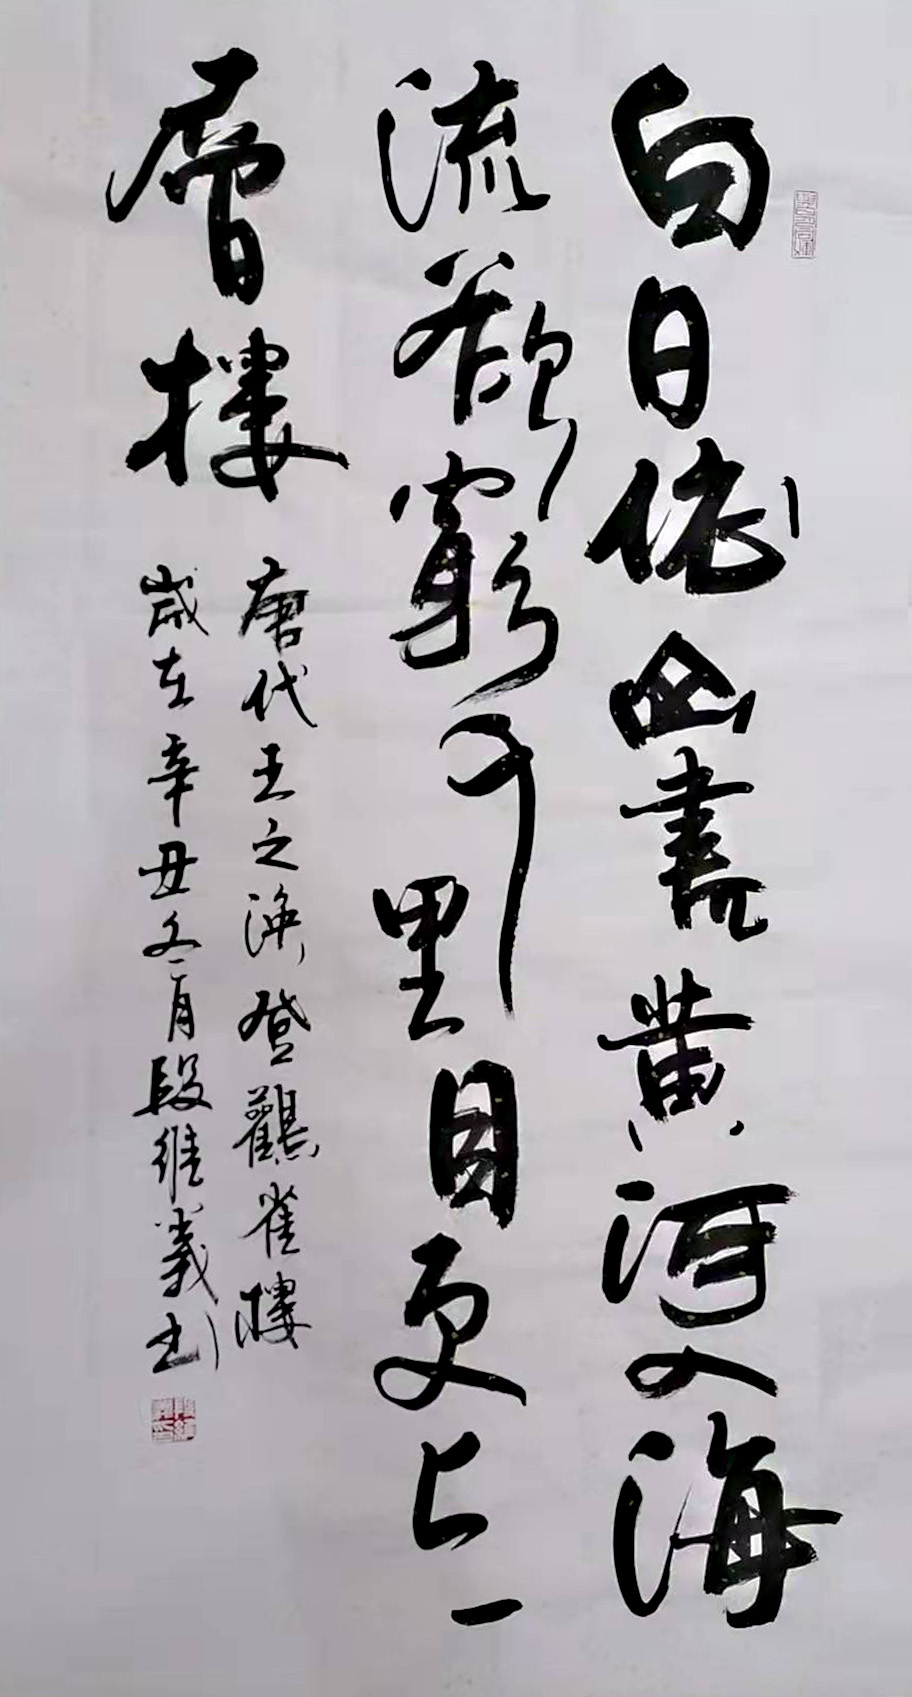 白日依山盡黄河入海
流欲窮千里目更上一
層樓
唐代王之渙登觀雀樓
歲在辛丑冬月段維義書